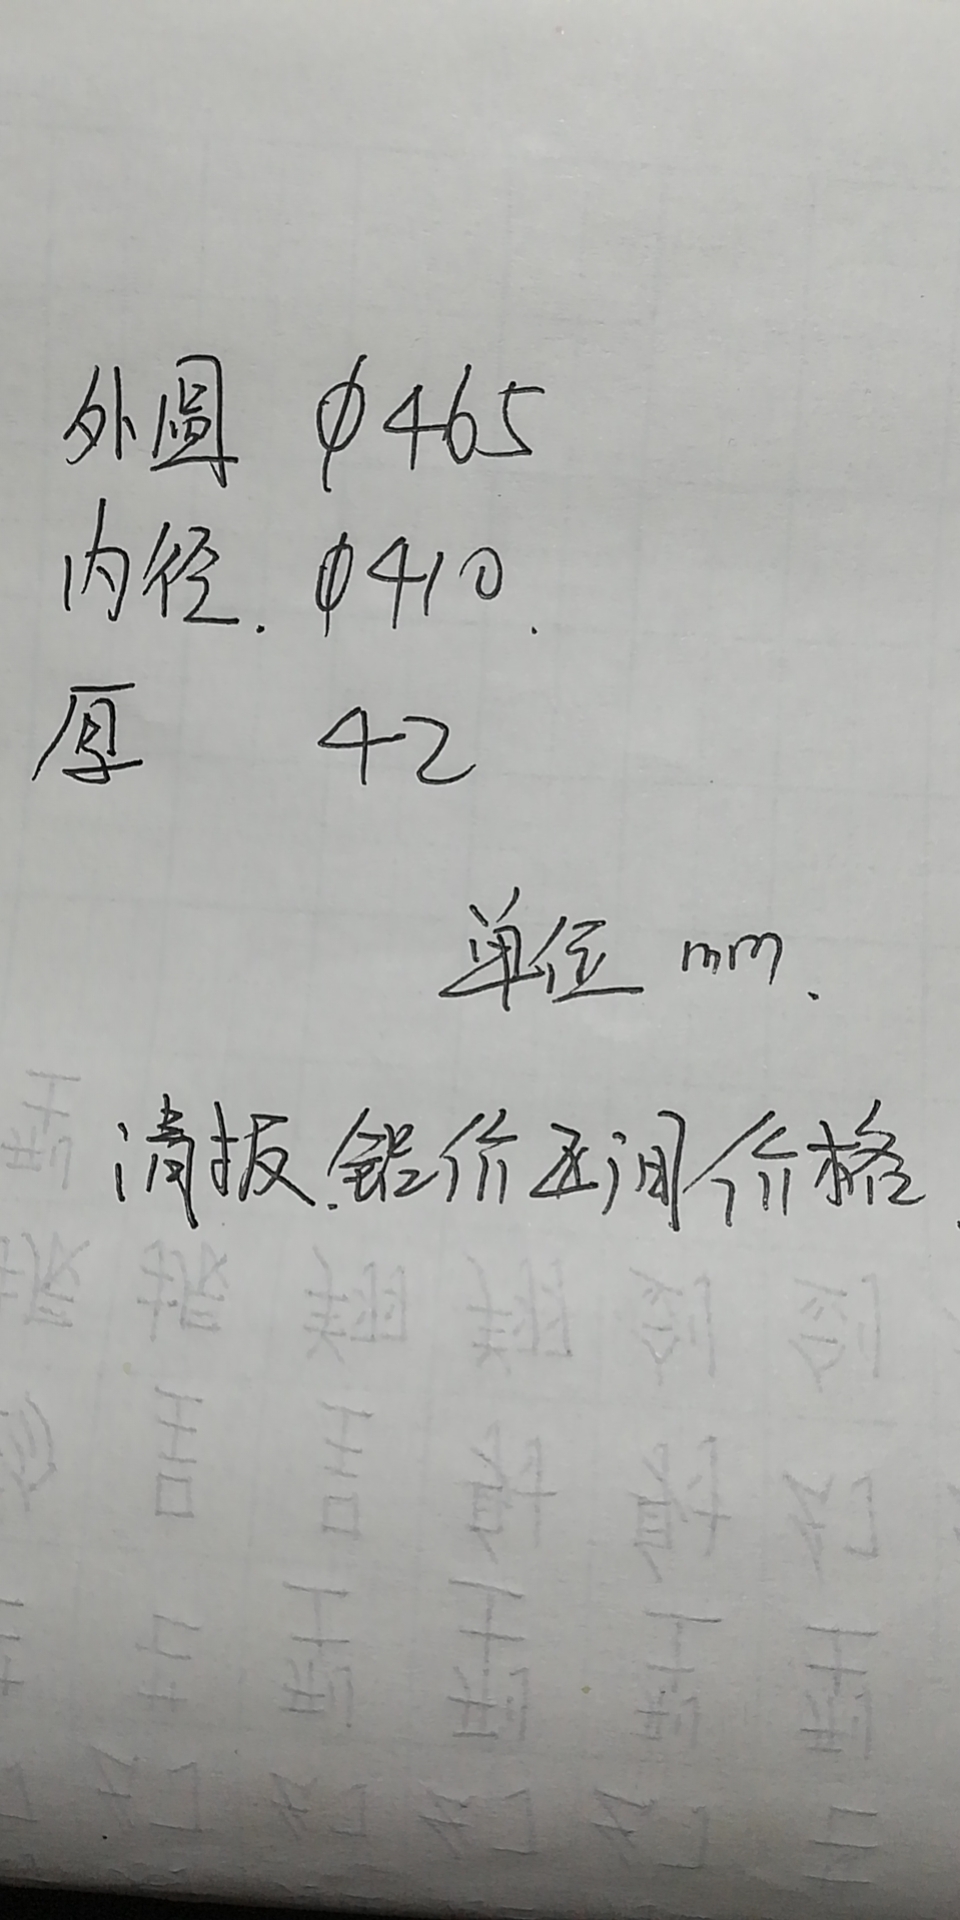 外圆 φ465
内径. φ410.
厚 42
单位 mm.
清拔.铝价 间价格.